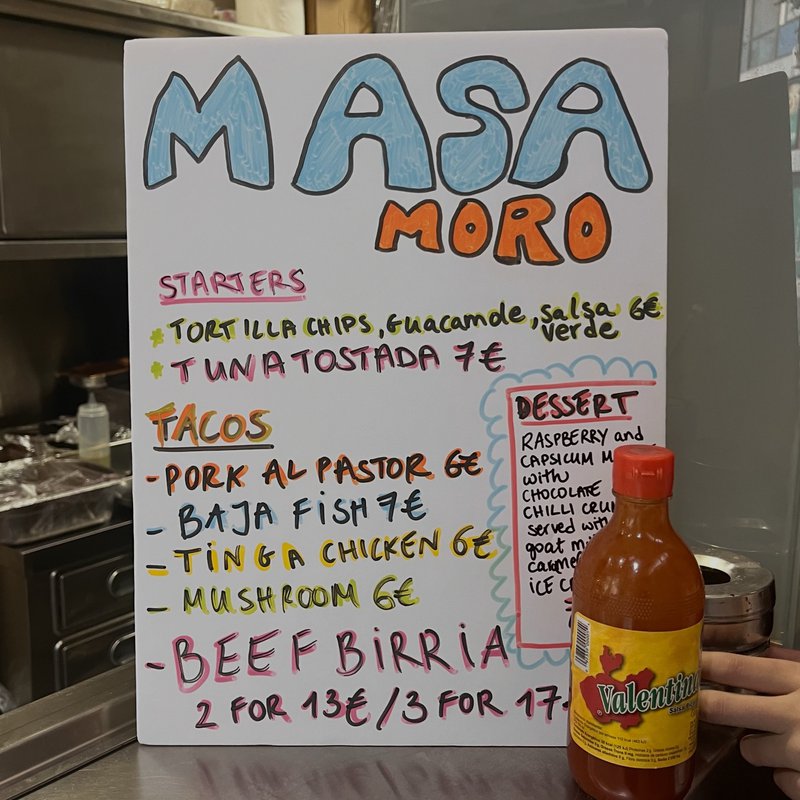 MASA
MORO
STARTERS
* TORTILLA CHIPS, Guacamole, salsa verde 6€
* TUNA TOSTADA 7€
TACOS
- PORK AL PASTOR 6€
- BAJA FISH 7€
- TINGA CHICKEN 6€
- MUSHROOM 6€
- BEEF BIRRIA
2 FOR 13€ / 3 FOR 17
DESSERT
RASPBERRY and
CAPSICUM
with
CHOCOLATE
CHILLI
served with
goat
ICE
Valentina